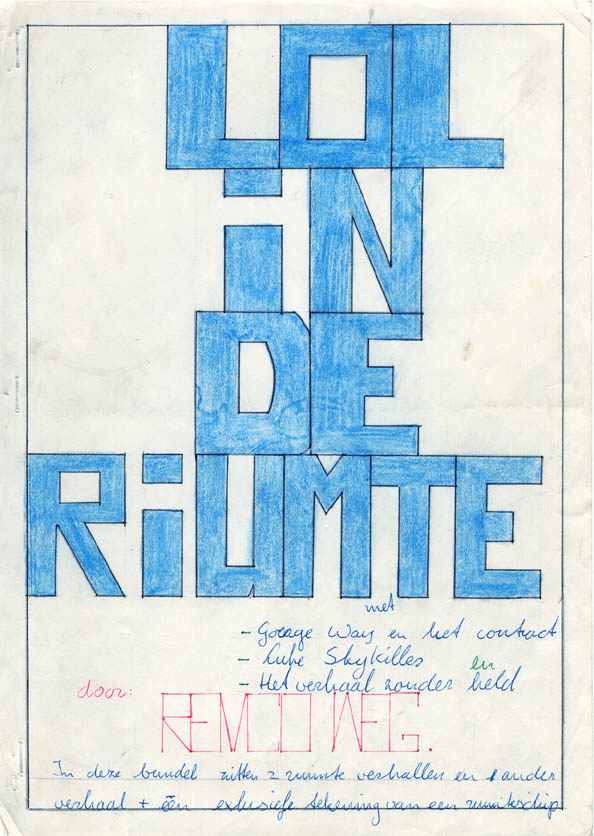 LOL
iN
DE
RiUMTE
met
- Goeage Way en het contract
- Luke Skykilles en
- Het verhaal zonder held
door:
REMCO WEG.
In deze bundel zitten 2 ruimte verhallen en 1 ander
verhaal + één exlusiefe tekening van een ruimteschip